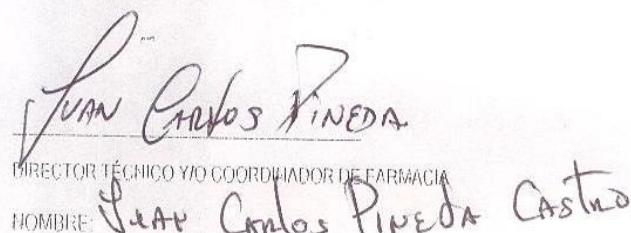 Juan Carlos Pineda
DIRECTOR TÉCNICO Y/O COORDINADOR DE FARMACIA
NOMBRE: Juan Carlos Pineda Castro